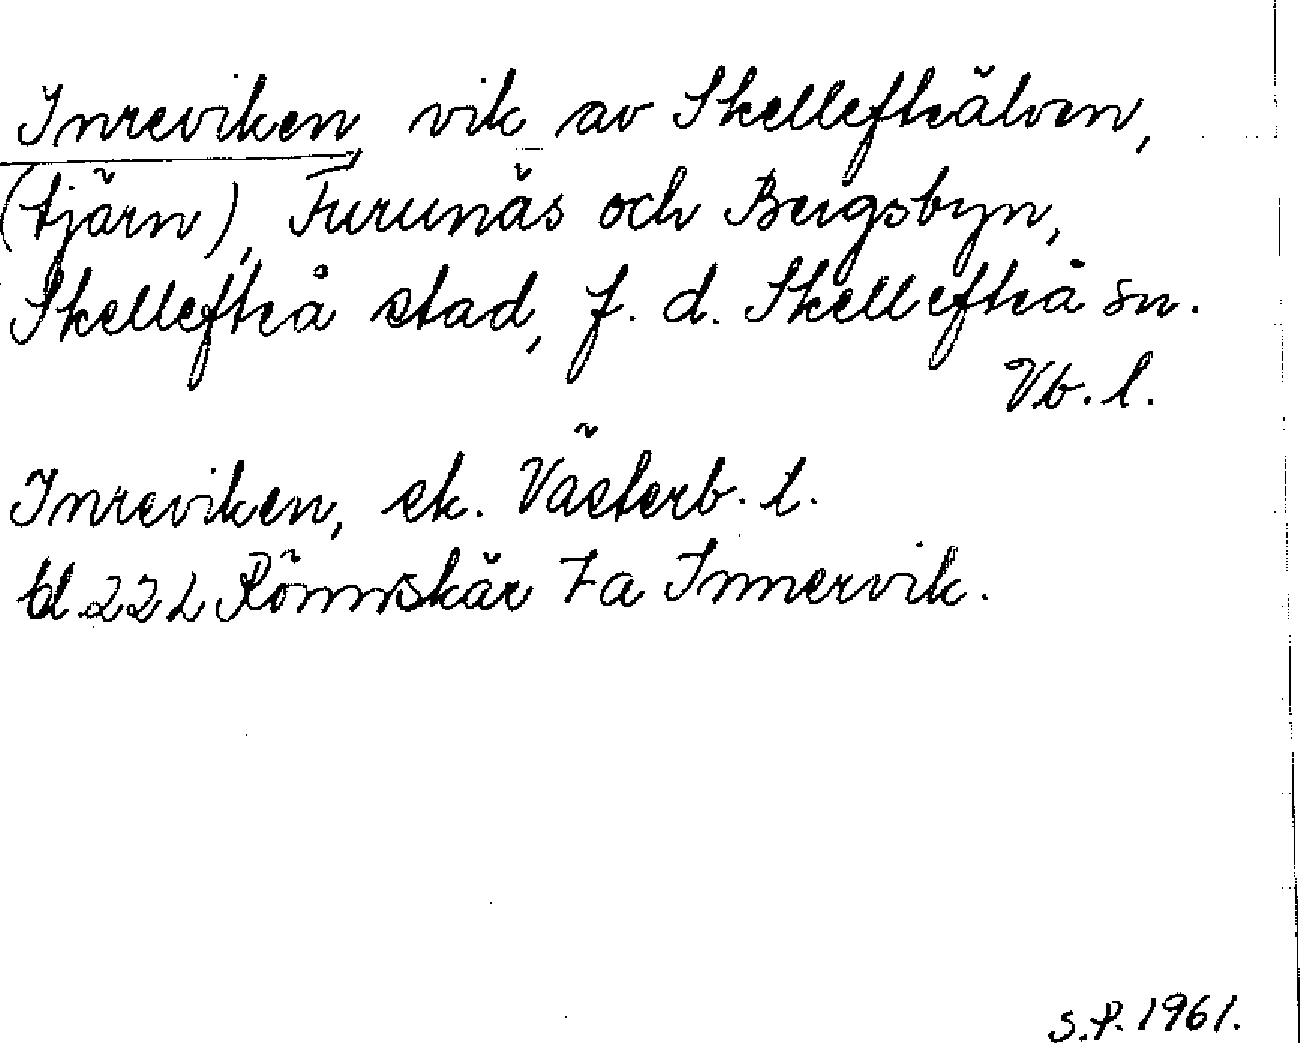 Inreviken, vik av Skellefteälven,
(tjärn), Furunäs och Bergsbyn,
Skellefteå stad, f. d. Skellefteå sn.
Vb. l.
Inreviken, ek. Västerb. l.
bl 22 L Rönnskär 7a Innervik.
S.P. 1961.